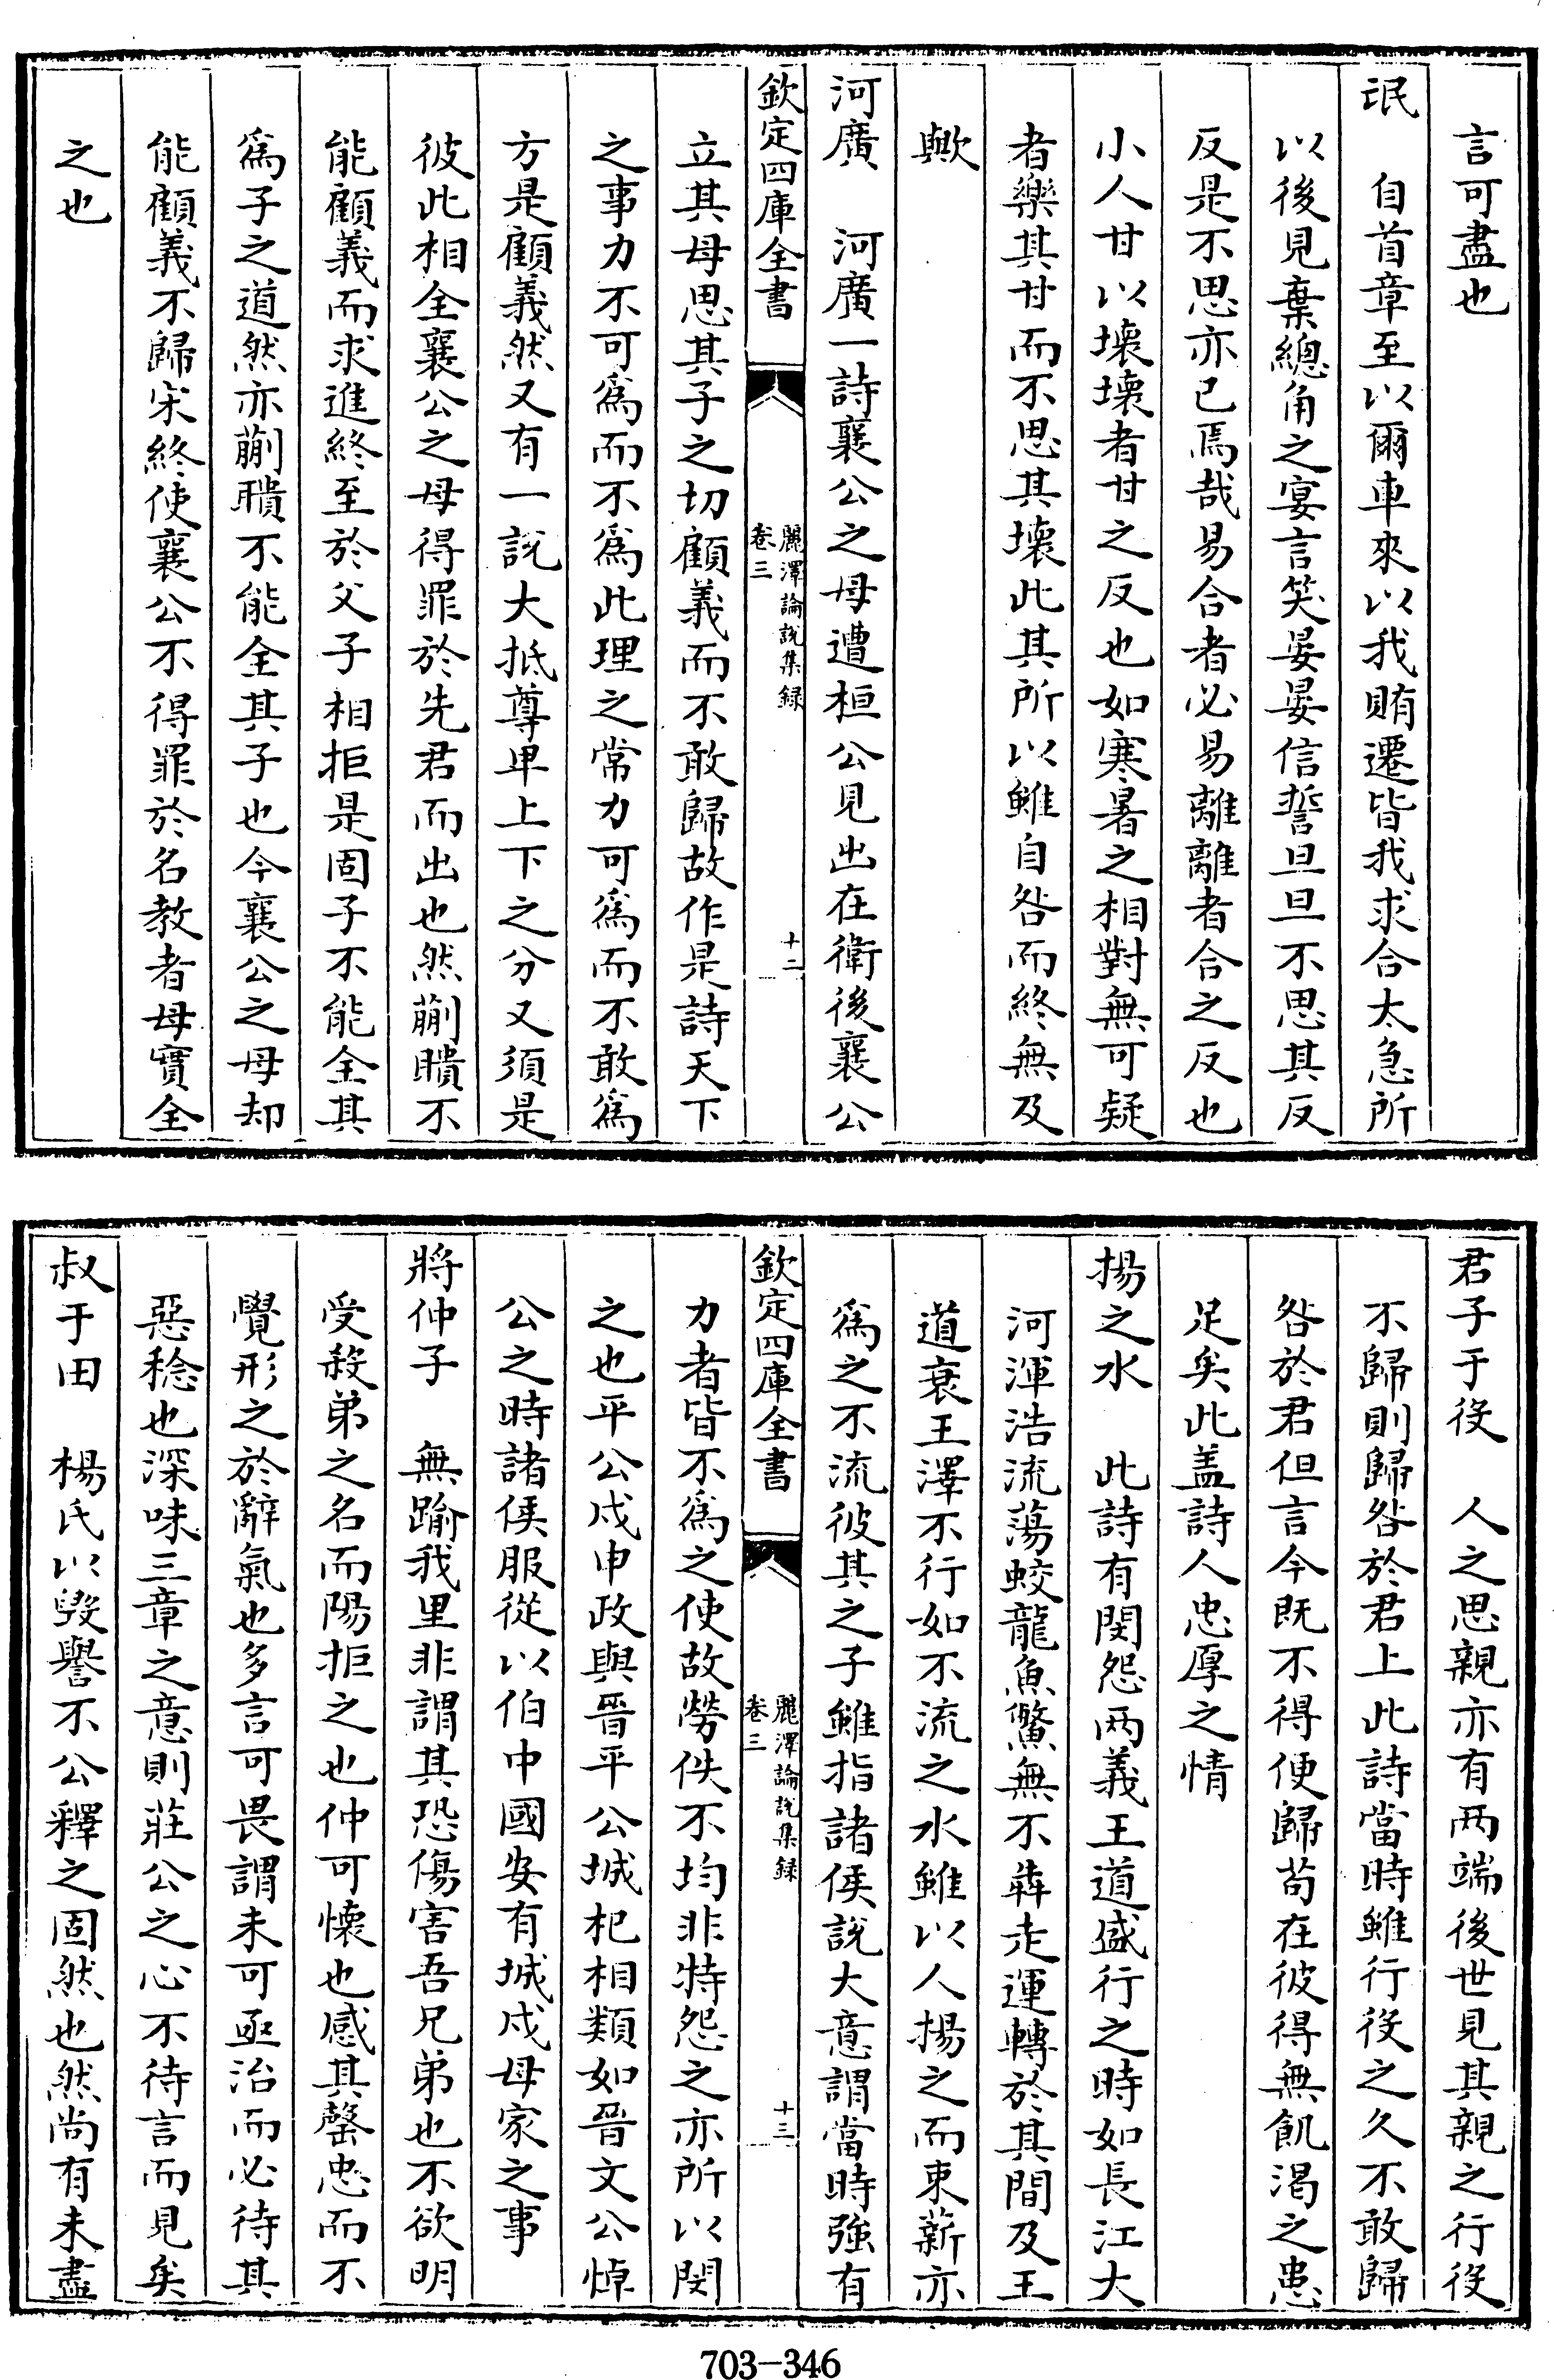 言可盡也
氓　自首章至以爾車來以我賄遷皆我求合太急所
以後見棄總角之宴言笑晏晏信誓旦旦不思其反
反是不思亦已焉哉易合者必易離離者合之反也
小人甘以壞壞者甘之反也如寒暑之相對無可疑
者樂其甘而不思其壞此其所以雖自咎而終無及
歟
河廣　河廣一詩襄公之母遭桓公見出在衛後襄公
欽定四庫全書
麗澤論說集録
卷三
十二
立其母思其子之切顧義而不敢歸故作是詩天下
之事力不可爲而不爲此理之常力可爲而不敢爲
方是顧義然又有一說大抵尊卑上下之分又須是
彼此相全襄公之母得罪於先君而出也然蒯聵不
能顧義而求進終至於父子相拒是固子不能全其
爲子之道然亦蒯聵不能全其子也今襄公之母却
能顧義不歸宋終使襄公不得罪於名教者母實全
之也
君子于役　人之思親亦有两端後世見其親之行役
不歸則歸咎於君上此詩當時雖行役之久不敢歸
咎於君但言今既不得便歸苟在彼得無飢渴之患
足矣此盖詩人忠厚之情
揚之水　此詩有閔怨两義王道盛行之時如長江大
河渾浩流蕩蛟龍魚鱉無不犇走運轉於其間及王
道衰王澤不行如不流之水雖以人揚之而束薪亦
爲之不流彼其之子雖指諸侯說大意謂當時強有
欽定四庫全書
麗澤論說集録
卷三
十三
力者皆不爲之使故勞佚不均非特怨之亦所以閔
之也平公戍申政與晉平公城杞相類如晉文公悼
公之時諸侯服從以伯中國安有城戍母家之事
將仲子　無踰我里非謂其恐傷害吾兄弟也不欲明
受殺弟之名而陽拒之也仲可懷也感其罄忠而不
覺形之於辭氣也多言可畏謂未可亟治而必待其
惡稔也深味三章之意則莊公之心不待言而見矣
叔于田　楊氏以毀譽不公釋之固然也然尚有未盡
703-346